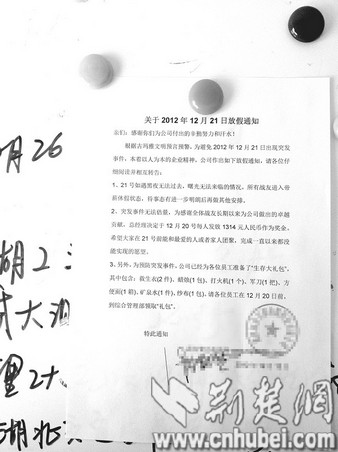 关于 2012 年 12 月 21 日放假通知
亲们：感谢你们为公司付出的辛勤努力和汗水！
根据古玛雅文明预言预警，为避免 2012 年 12 月 21 日出现突发
事件，本着以人为本的企业精神，公司作出如下放假通知，请各位仔
细阅读并相互转告：
1、21 号如遇黑夜无法过去，曙光无法来临的情况，所有战友进入带
薪休假状态，待事态有进一步明朗后再做其他安排。
2、突发事件无法估量，为感谢全体战友长期以来为公司做出的卓越
贡献，总经理决定于 12 月 20 号每人发放 1314 元人民币作为奖金。
希望大家在 21 号前能和最爱的人或者家人团聚，完成一直以来都没
能实现的愿望。
3、另外，为预防突发事件，公司已经为各位员工准备了“生存大礼包”，
其中包含：救生衣(2 件)，蜡烛(1 包)，打火机(1 个)，军刀(1 把)，方
便面(1 箱)，矿泉水(1 件)，纱布(1 包)，请各位员工在 12 月 20 日前，
到综合管理部领取“礼包”。
特此通知
月26
湖2
大
2十
湖北
荆楚网
www.cnhubei.com